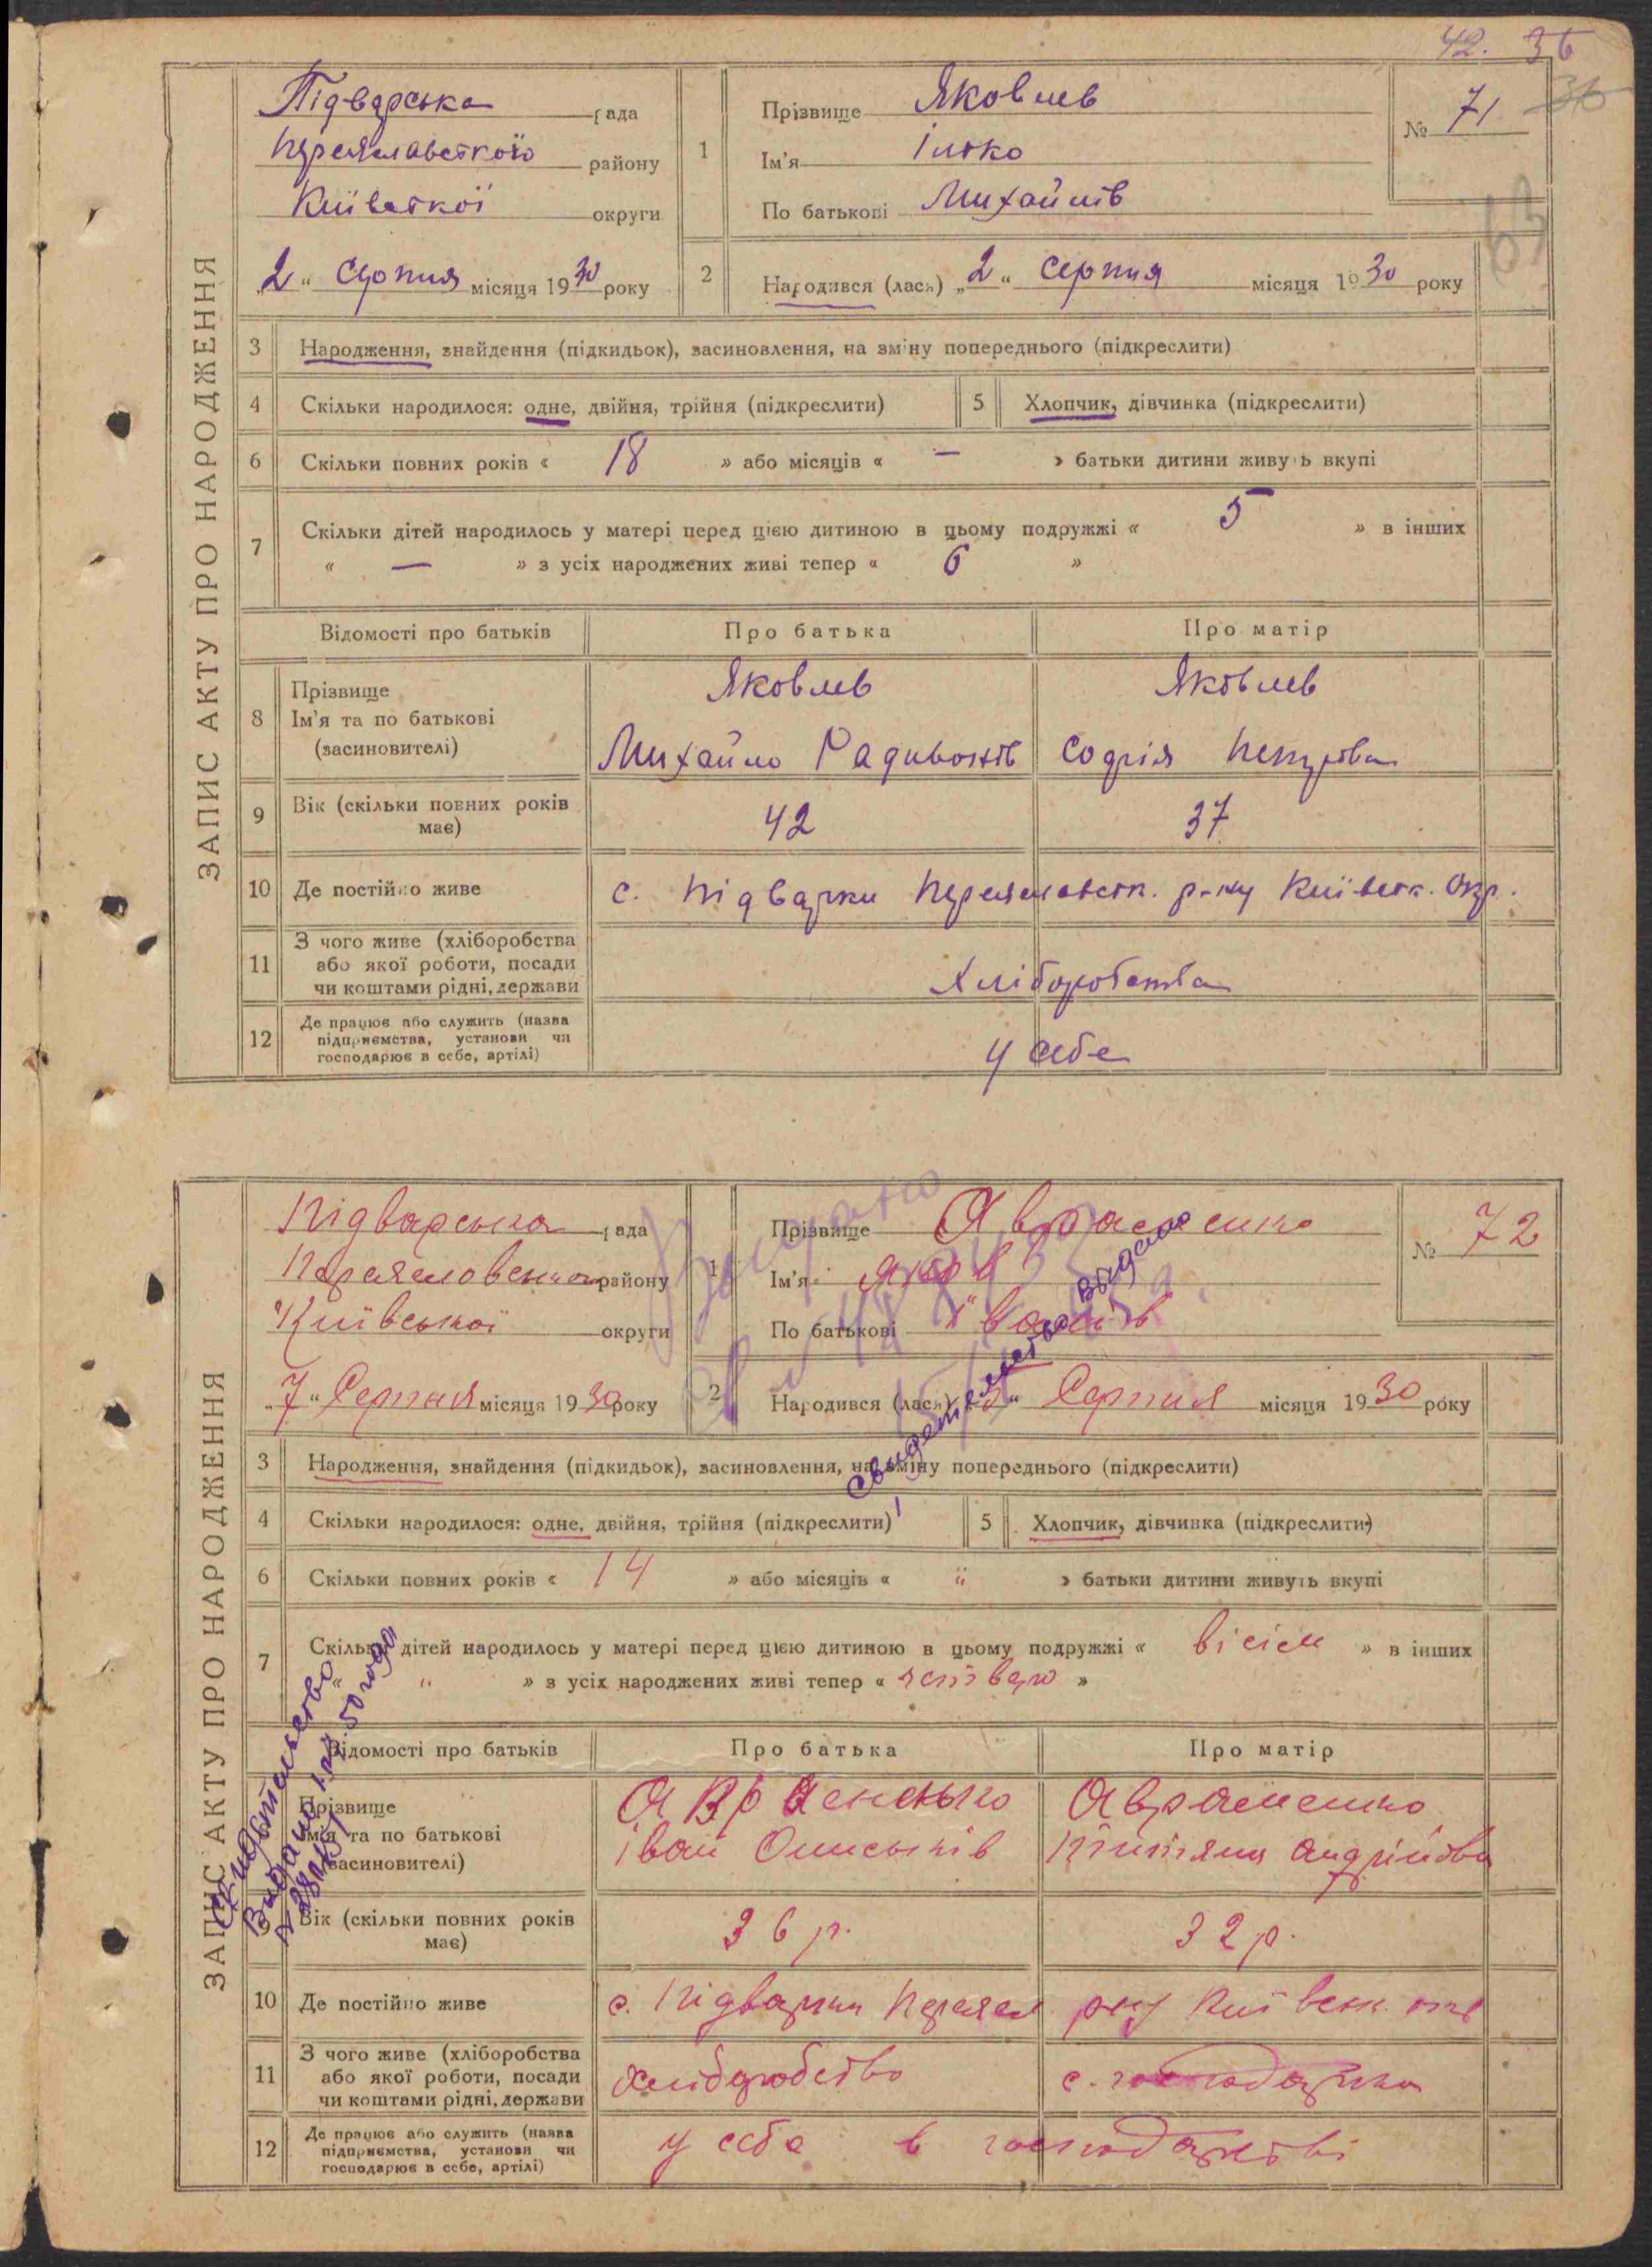 42. 36
36
ЗАПИС АКТУ ПРО НАРОДЖЕННЯ
Підварська рада
району
Київської округи
„2“ Серпня місяця 1930 року
1
Прізвище Яковлев
Ім'я Ілько
По батькові Михайлів
№ 71
2
Народився (лася) „2“ Серпня місяця 1930 року
3 Народження, знайдення (підкидьок), засиновлення, на зміну попереднього (підкреслити)
4 Скільки народилося: одне, двійня, трійня (підкреслити)
5 Хлопчик, дівчинка (підкреслити)
6 Скільки повних років « 18 » або місяців « — » батьки дитини живуть вкупі
7 Скільки дітей народилось у матері перед цією дитиною в цьому подружжі « 5 » в інших
« — » з усіх народжених живі тепер « 6 »
Відомості про батьків Про батька Про матір
8 Прізвище
Ім'я та по батькові
(засиновителі)
Яковлев
Михайло
Яковлев
9 Вік (скільки повних років має) 42 37
10 Де постійно живе с. Підварки Переяславськ. р-ну Київськ. Окр.
11 З чого живе (хліборобства
або якої роботи, посади
чи коштами рідні, держави
Хліборобства
12 Де працює або служить (назва
підприємства, установи чи
господарює в себе, артілі)
у себе
ЗАПИС АКТУ ПРО НАРОДЖЕННЯ
Підварська рада
району
Київської округи
„7“ Серпня місяця 1930 року
1
Прізвище Авраменко
Ім'я Яков
По батькові Іванів
№ 72
2
Народився (лася) Серпня місяця 1930 року
свидетельство выдано
3 Народження, знайдення (підкидьок), засиновлення, на зміну попереднього (підкреслити)
4 Скільки народилося: одне, двійня, трійня (підкреслити)
5 Хлопчик, дівчинка (підкреслити)
6 Скільки повних років « 14 » або місяців « „ » батьки дитини живуть вкупі
7 Скільки дітей народилось у матері перед цією дитиною в цьому подружжі « вісім » в інших
« „ » з усіх народжених живі тепер « »
Свидетельство
50 года
Відомості про батьків Про батька Про матір
Прізвище
Ім'я та по батькові
(засиновителі)
Авраменко
Іван
Авраменко
Андріївна
Вік (скільки повних років має) 36 р. 32 р.
10 Де постійно живе с. Підварки Переясл. р-ну Київськ. окр
11 З чого живе (хліборобства
або якої роботи, посади
чи коштами рідні, держави
хліборобство
12 Де працює або служить (назва
підприємства, установи чи
господарює в себе, артілі)
у себе в господарстві